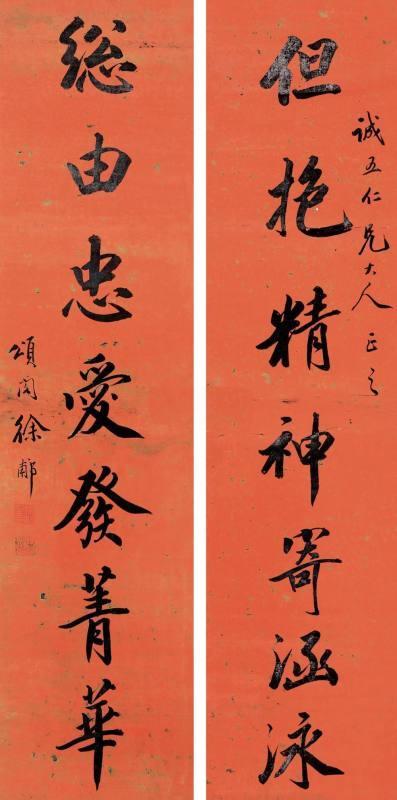 誠五仁兄大人正之
但抱精神寄涵泳
総由忠愛發菁華
頌閣徐郙